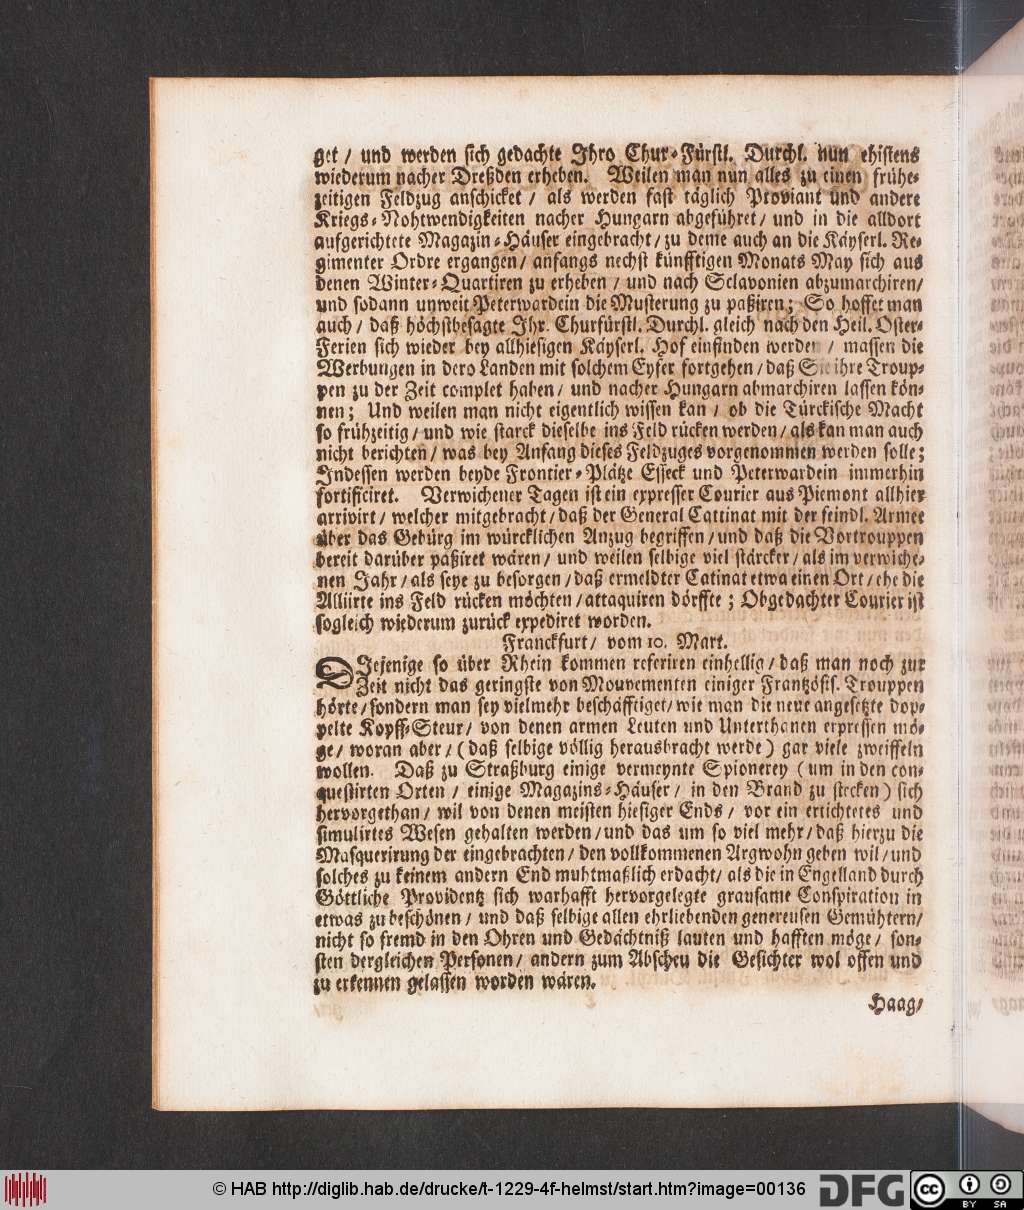 get / und werden sich gedachte Ihro Chur-Fürstl. Durchl. nun ehistens
wiederum nacher Dreßden erheben. Weilen man nun alles zu einen frühe-
zeitigen Feldzug anschicket / als werden fast täglich Proviant und andere
Kriegs-Nohtwendigkeiten nacher Hungarn abgeführet / und in die alldort
aufgerichtete Magazin-Häuser eingebracht / zu deme auch an die Käyserl. Re-
gimenter Ordre ergangen / anfangs nechst künfftigen Monats May sich aus
denen Winter-Quartiren zu erheben / und nach Sclavonien abzumarchiren /
und sodann unweit Peterwardein die Musterung zu paßiren; So hoffet man
auch / daß höchstbesagte Ihr. Churfürstl. Durchl. gleich nach den Heil. Oster-
Ferien sich wieder bey allhiesigen Käyserl. Hof einfinden werden / massen die
Werbungen in dero Landen mit solchem Eyfer fortgehen / daß Sie ihre Troup-
pen zu der Zeit complet haben / und nacher Hungarn abmarchiren lassen kön-
nen; Und weilen man nicht eigentlich wissen kan / ob die Türckische Macht
so frühzeitig / und wie starck dieselbe ins Feld rücken werden / als kan man auch
nicht berichten / was bey Anfang dieses Feldzuges vorgenommen werden solle;
Indessen werden beyde Frontier-Plätze Esseck und Peterwardein immerhin
fortificiret. Verwichener Tagen ist ein expresser Courier aus Piemont allhier
arrivirt / welcher mitgebracht / daß der General Cattinat mit der feindl. Armee
über das Gebürg im würcklichen Anzug begriffen / und daß die Vortrouppen
bereit darüber paßiret wären / und weilen selbige viel stärcker / als im verwiche-
nen Jahr / als seye zu besorgen / daß ermeldter Catinat etwa einen Ort / ehe die
Alliirte ins Feld rücken möchten / attaquiren dörffte; Obgedachter Courier ist
sogleich wiederum zurück expediret worden.
Franckfurt / vom 10. Mart.
DIejenige so über Rhein kommen referiren einhellig / daß man noch zur
Zeit nicht das geringste von Mouvementen einiger Frantzösis. Trouppen
hörte / sondern man sey vielmehr beschäfftiget / wie man die neue angesetzte dop-
pelte Kopff-Steur / von denen armen Leuten und Unterthanen erpressen mö-
ge / woran aber / (daß selbige völlig herausbracht werde) gar viele zweiffeln
wollen. Daß zu Straßburg einige vermeynte Spionerey (um in den con-
questirten Orten / einige Magazins-Häuser / in den Brand zu stecken) sich
hervorgethan / wil von denen meisten hiesiger Ends / vor ein ertichtetes und
simulirtes Wesen gehalten werden / und das um so viel mehr / daß hierzu die
Masquerirung der eingebrachten / den vollkommenen Argwohn geben wil / und
solches zu keinem andern End muhtmaßlich erdacht / als die in Engelland durch
Göttliche Providentz sich warhafft hervorgelegte grausame Conspiration in
etwas zu beschönen / und daß selbige allen ehrliebenden genereusen Gemühtern /
nicht so fremd in den Ohren und Gedächtniß lauten und hafften möge / son-
sten dergleichen Personen / andern zum Abscheu die Gesichter wol offen und
zu erkennen gelassen worden wären.
Haag /
© HAB http://diglib.hab.de/drucke/t-1229-4f-helmst/start.htm?image=00136
DFG
cc BY SA